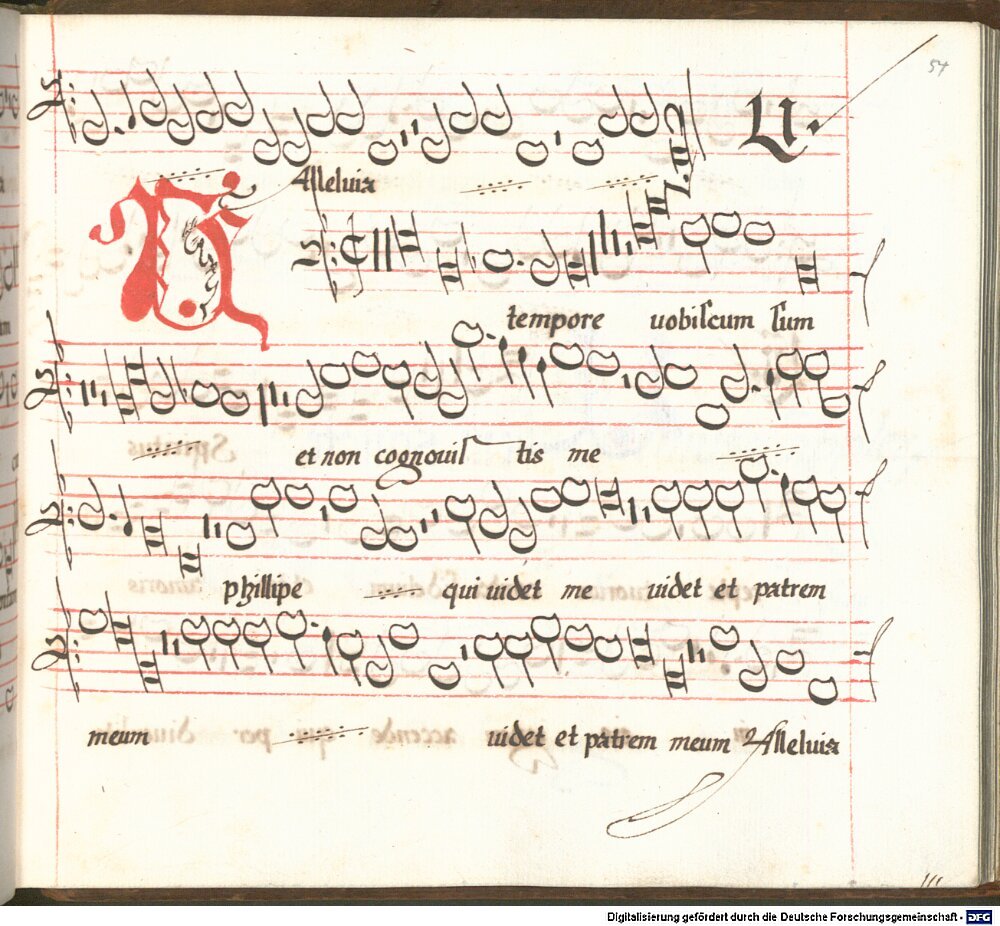 54
Alleluia
tempore uobiſcum ſum
et non cognouiſ tis me
phillipe qui uidet me uidet et patrem
meum uidet et patrem meum Alleluia
Digitalisierung gefördert durch die Deutsche Forschungsgemeinschaft - DFG